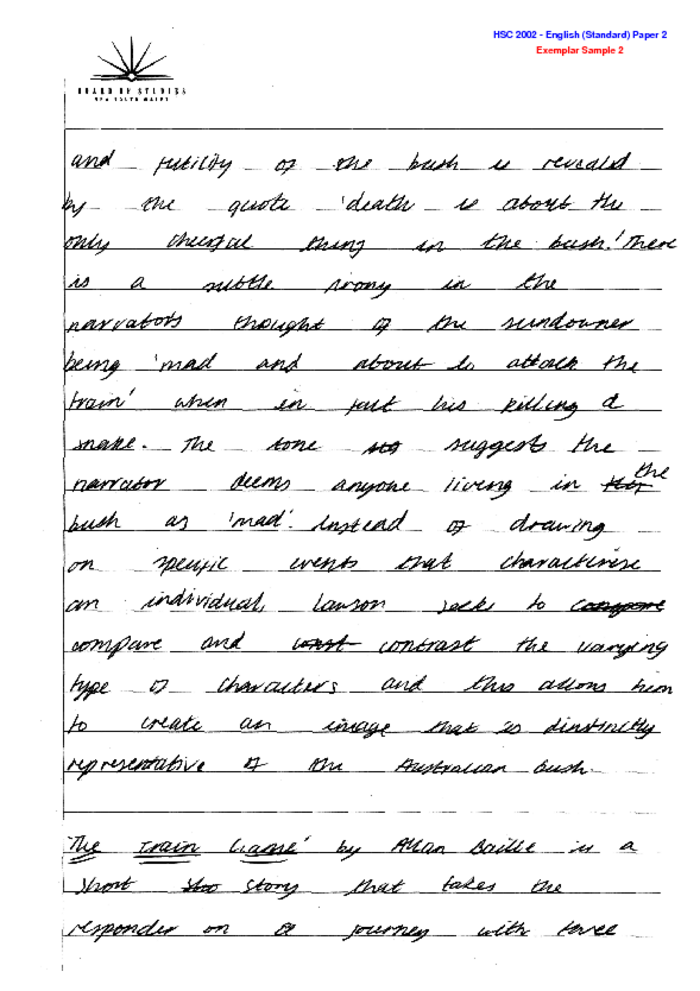 HSC 2002 - English (Standard) Paper 2
Exemplar Sample 2
BOARD OF STUDIES
NEW SOUTH WALES
and futility of the bush is revealed
by the quote 'death is about the
only cheerful thing in the bush.' There
is a subtle irony in the
narrators thought of the sundowner
being 'mad and about to attack the
train' when in fact his killing a
snake. The tone suggests the
narrator deems anyone living in the
bush as 'mad'. Instead of drawing
on specific events that characterise
an individual, Lawson seeks to
compare and contrast the varying
type of characters and this allows him
to create an image that is dinstinctly
representative of the Australian bush.
'The Train Game' by Allan Baille is a
short story that takes the
responder on a journey with three